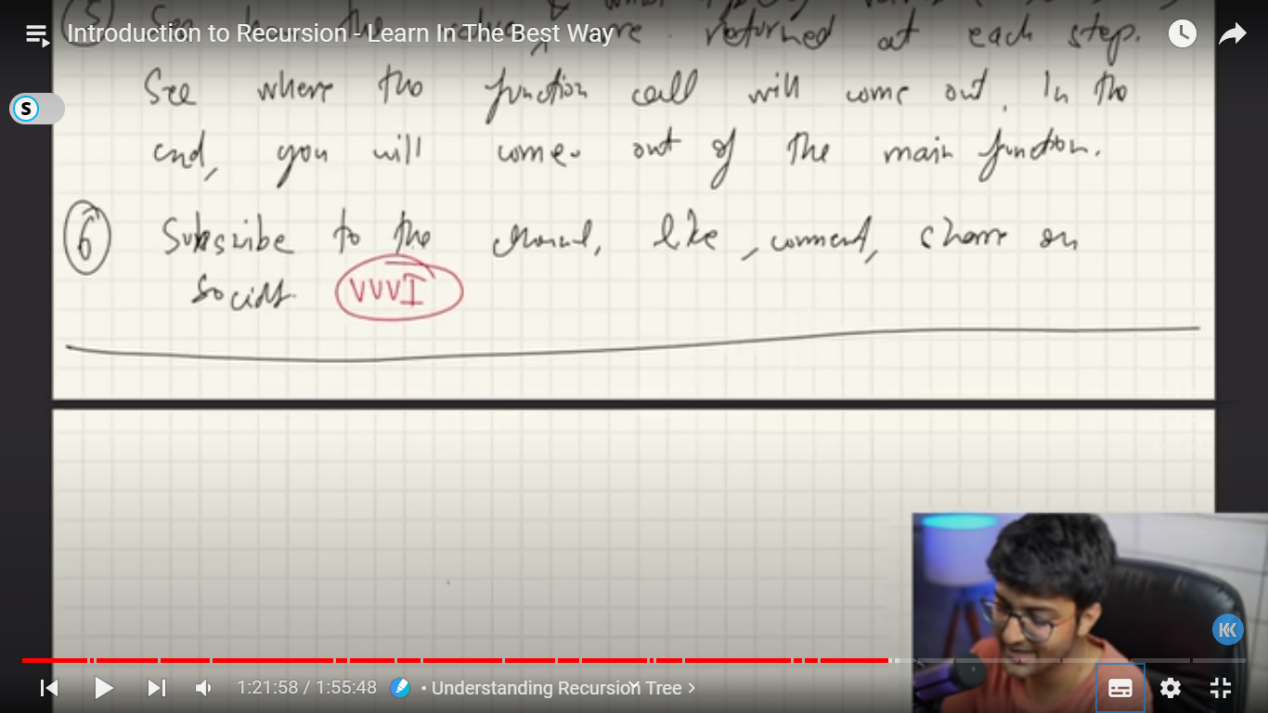 Introduction to Recursion - Learn In The Best Way
5 See how the values & what are returned at each step.
S
See where the function call will come out. In the
end, you will come out of the main function.
6 Subscribe to the channel, like, comment, share on
socials. VVVI
KK
1:21:58 / 1:55:48 • Understanding Recursion Tree >